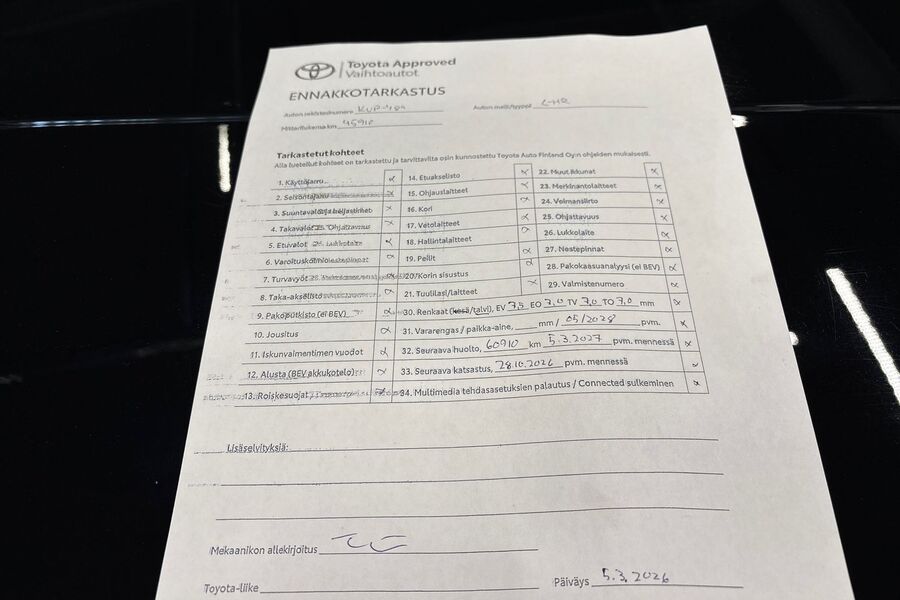 Toyota Approved
Vaihtoautot
ENNAKKOTARKASTUS
Auton rekisterinumero
Auton malli/tyyppi C-HR
Mittarilukema km 45910
Tarkastetut kohteet
Alla luetellut kohteet on tarkastettu ja tarvittavilta osin kunnostettu Toyota Auto Finland Oy:n ohjeiden mukaisesti.
1. Käyttöjarru
2. Seisontajarru
3. Suuntavalot ja heijastimet
4. Takavalot
5. Etuvalot
6. Varoituskolmio
7. Turvavyöt
8. Taka-akselisto
9. Pakoputkisto (ei BEV)
10. Jousitus
11. Iskunvaimentimien vuodot
12. Alusta (BEV akkukotelo)
13. Roiskesuojat
14. Etuakselisto
15. Ohjauslaitteet
16. Kori
17. Vetolaitteet
18. Hallintalaitteet
19. Peilit
20. Korin sisustus
21. Tuulilasi/laitteet
22. Muut ikkunat
23. Merkinantolaitteet
24. Voimansiirto
25. Ohjattavuus
26. Lukkolaite
27. Nestepinnat
28. Pakokaasuanalyysi (ei BEV)
29. Valmistenumero
30. Renkaat (kesä/talvi), EV 7,5 EO 7,0 TV 7,0 TO 7,0 mm
31. Vararengas / paikka-aine, mm / 05/2028 pvm.
32. Seuraava huolto, 60910 km 5.3.2027 pvm. mennessä
33. Seuraava katsastus, 28.10.2026 pvm. mennessä
34. Multimedia tehdasasetuksien palautus / Connected sulkeminen
Lisäselvityksiä:
Mekaanikon allekirjoitus
Toyota-liike
Päiväys 5.3.2026